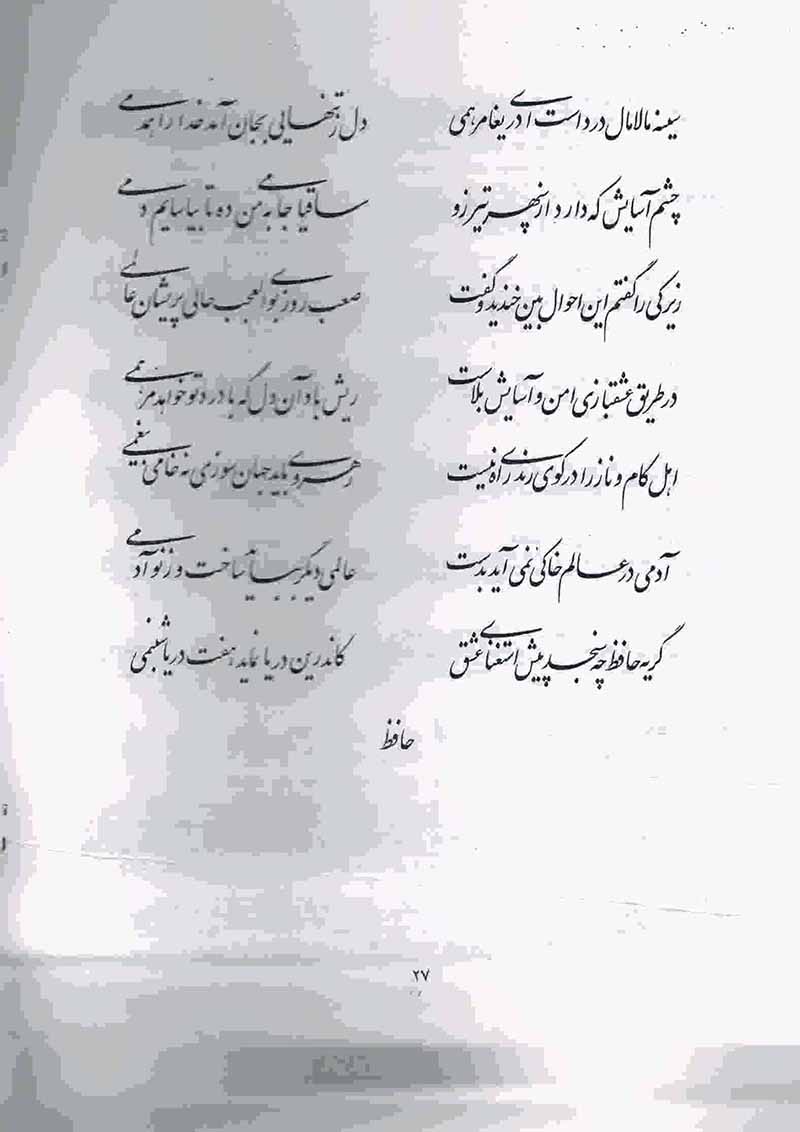 سینه مالامال درد است ای دریغا مرهمی دل ز تنهایی بجان آمد خدا را همدمی
چشم آسایش که دارد از سپهر تیزرو ساقیا جامی به من ده تا بیاسایم دمی
زیرکی را گفتم این احوال بین خندید و گفت صعب روزی بوالعجب حالی پریشان عالمی
در طریق عشقبازی امن و آسایش بلاست ریش باد آن دل که با درد تو خواهد مرهمی
اهل کام و ناز را در کوی رندی راه نیست رهروی باید جهان سوزی نه خامی بیغمی
آدمی در عالم خاکی نمی آید بدست عالمی دیگر بباید ساخت وز نو آدمی
گریه حافظ چه سنجد پیش استغنای عشق کاندرین دریا نماید هفت دریا شبنمی
حافظ
۲۷